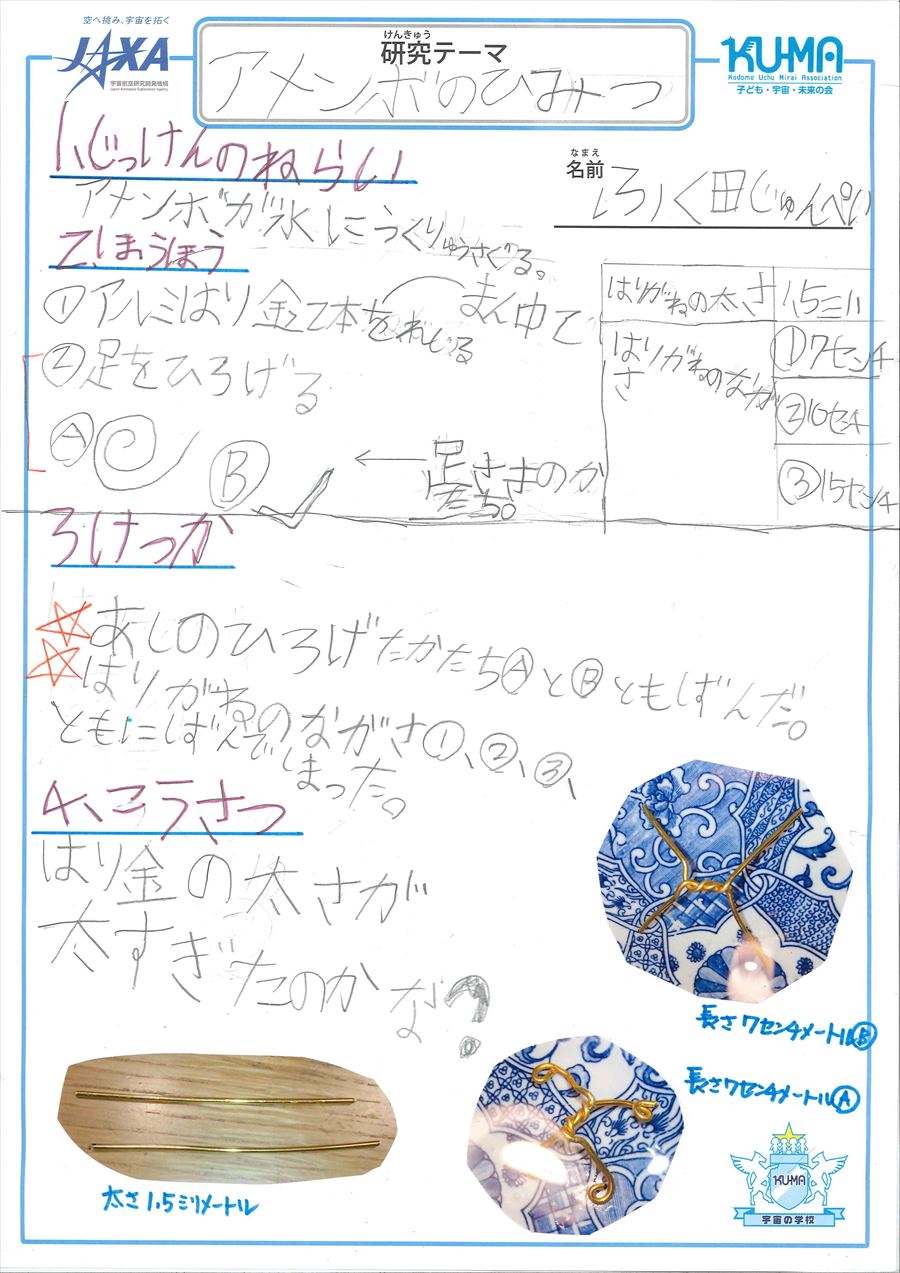 空へ挑み、宇宙を拓く
JAXA
宇宙航空研究開発機構
Japan Aerospace Exploration Agency
けんきゅう
研究テーマ
アメンボのひみつ
KU-MA
Kodomo Uchu Mirai Association
子ども・宇宙・未来の会
1、じっけんのねらい
なまえ
名前
ふく田じゅんぺい
アメンボが水にうくりゆうさぐる。
2、ほうほう
①アルミはり金2本をまん中で
ねじる
②足をひろげる
Ⓐ
Ⓑ
←足さきのか
たち。
はりがねの太さ
1.5ミリ
はりがねのなが
さ
①7センチ
②10センチ
③15センチ
3けっか
☆あしのひろげたかたちⒶとⒷともしずんだ。
☆はりがねのながさ①、②、③、
ともにしずんでしまった。
4、こうさつ
はり金の太さが
太すぎたのかな?
長さ7センチメートルⒷ
長さ7センチメートルⒶ
太さ1.5ミリメートル
KU-MA
宇宙の学校